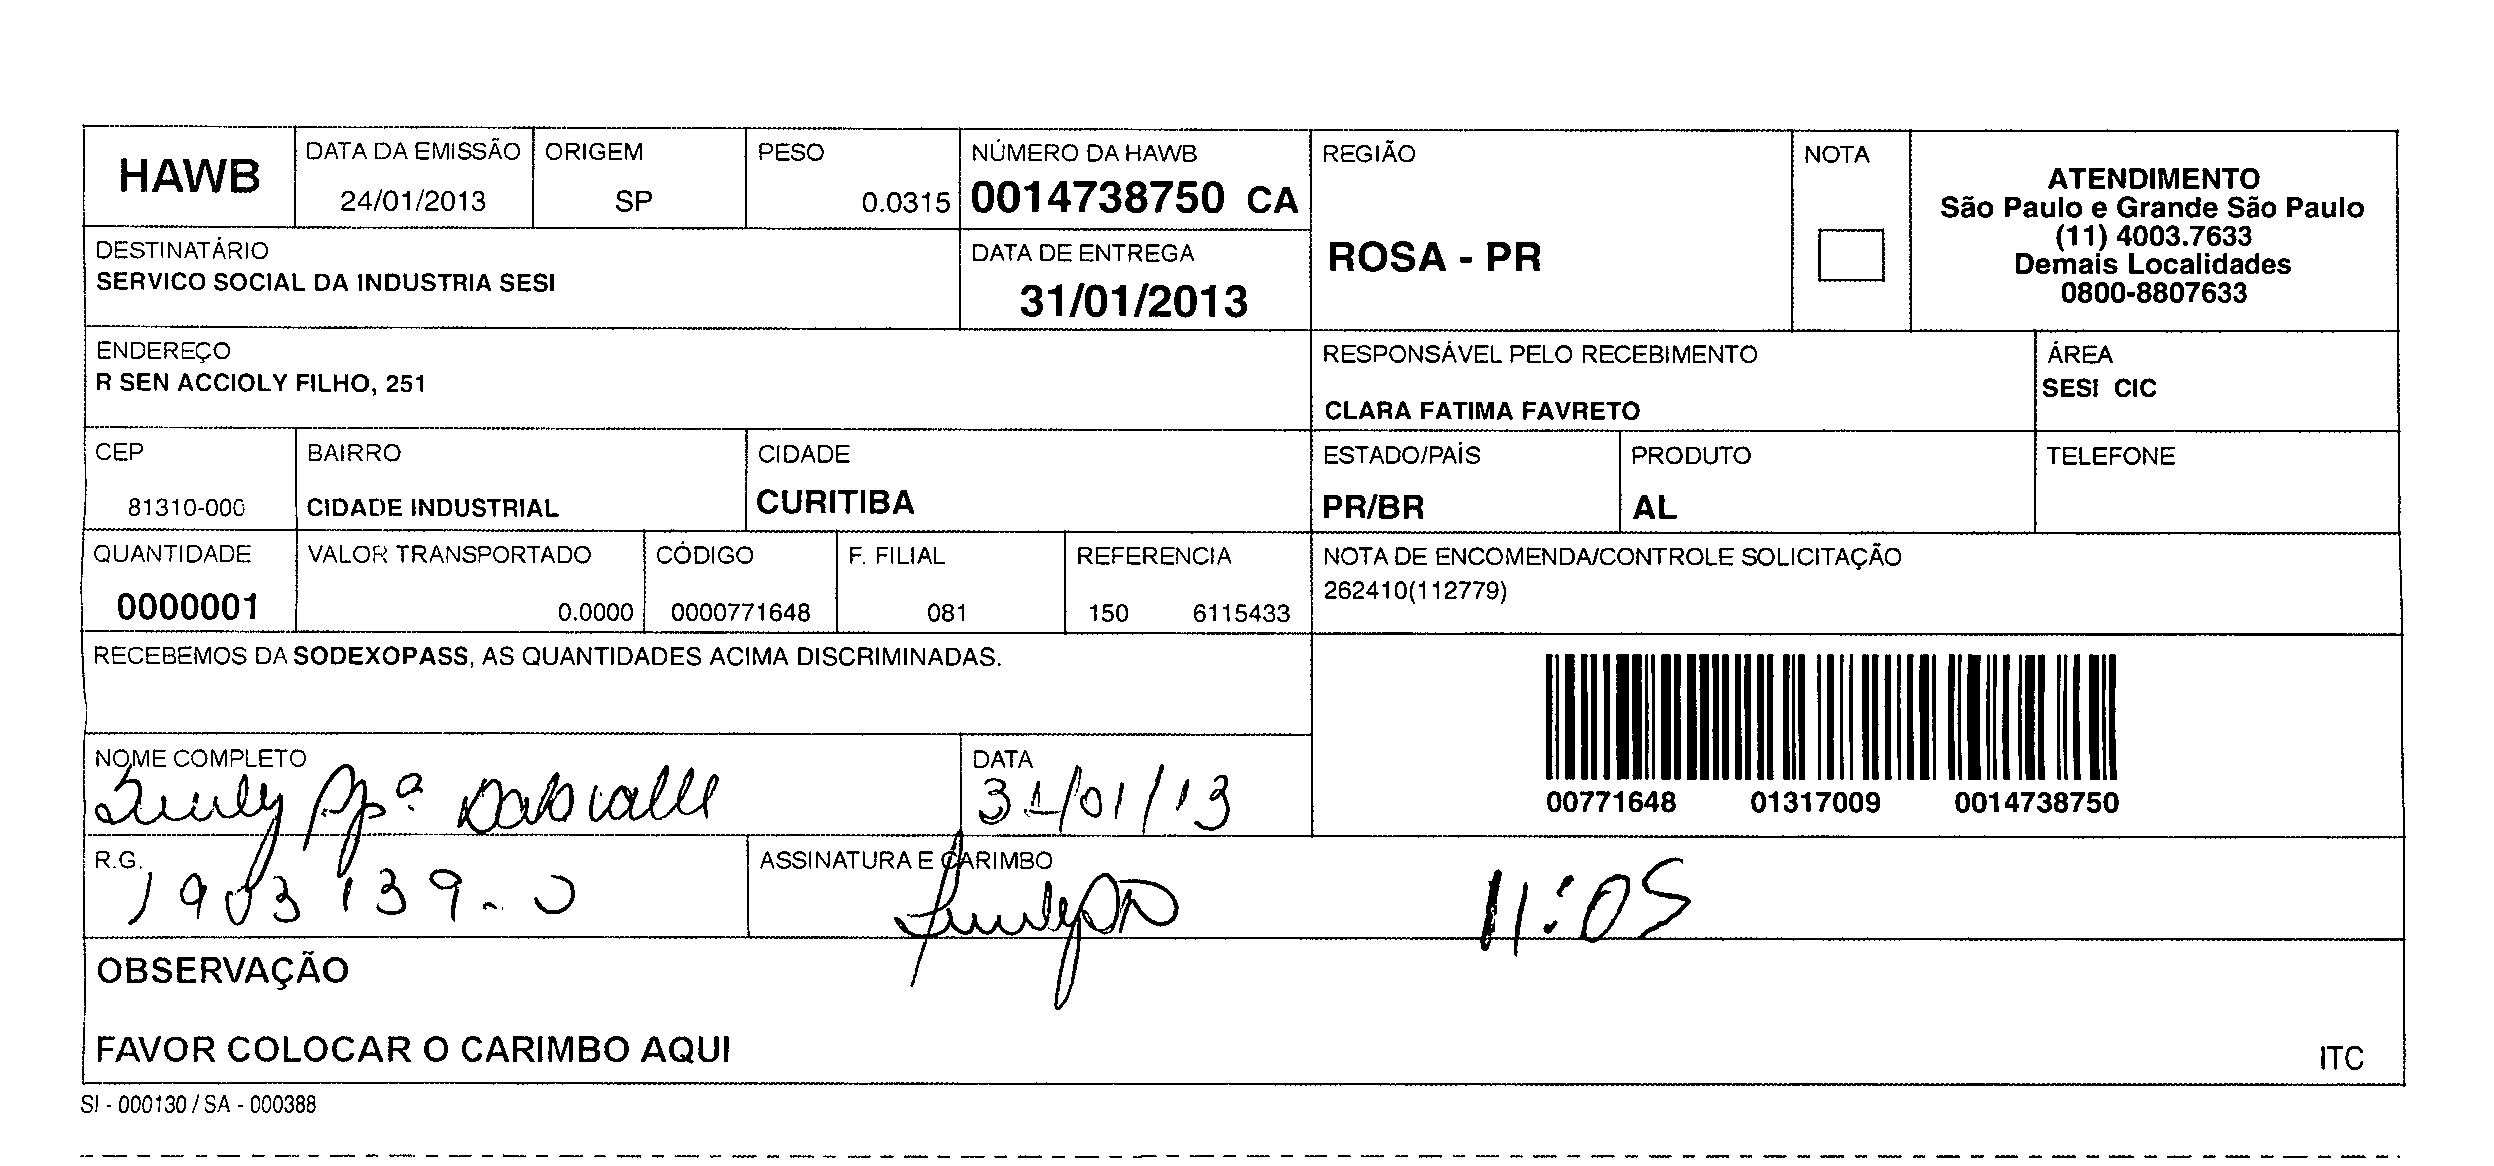 HAWB
DATA DA EMISSÃO
24/01/2013
ORIGEM
SP
PESO
0.0315
NÚMERO DA HAWB
0014738750 CA
REGIÃO
ROSA - PR
NOTA
ATENDIMENTO
São Paulo e Grande São Paulo
(11) 4003.7633
Demais Localidades
0800-8807633
DESTINATÁRIO
SERVICO SOCIAL DA INDUSTRIA SESI
DATA DE ENTREGA
31/01/2013
ENDEREÇO
R SEN ACCIOLY FILHO, 251
RESPONSÁVEL PELO RECEBIMENTO
CLARA FATIMA FAVRETO
ÁREA
SESI CIC
CEP
81310-000
BAIRRO
CIDADE INDUSTRIAL
CIDADE
CURITIBA
ESTADO/PAÍS
PR/BR
PRODUTO
AL
TELEFONE
QUANTIDADE
0000001
VALOR TRANSPORTADO
0.0000
CÓDIGO
0000771648
F. FILIAL
081
REFERENCIA
150 6115433
NOTA DE ENCOMENDA/CONTROLE SOLICITAÇÃO
262410(112779)
RECEBEMOS DA SODEXOPASS, AS QUANTIDADES ACIMA DISCRIMINADAS.
00771648 01317009 0014738750
NOME COMPLETO
DATA
31/01/13
R.G.
1903139-0
ASSINATURA E CARIMBO
11:05
OBSERVAÇÃO
FAVOR COLOCAR O CARIMBO AQUI
ITC
SI - 000130 / SA - 000388